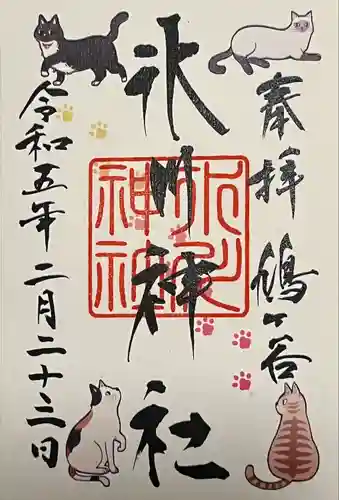 奉拝
鳩ヶ谷
氷川神社
氷川
神社
令和五年二月二十三日